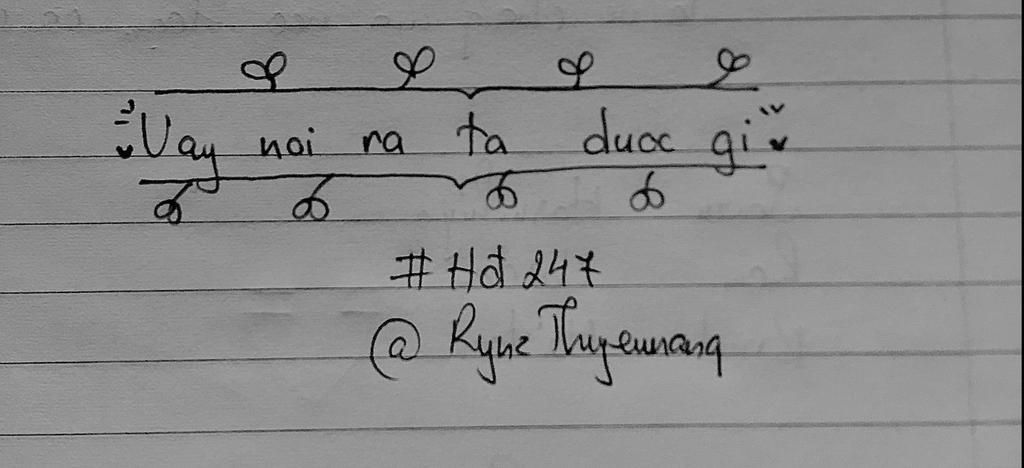 Vay noi ra ta duoc gi
# Hđ 247
@ Ryne Thuyeumang